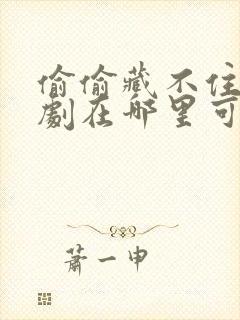 偷偷藏不住
劇在哪里可
蕭一申